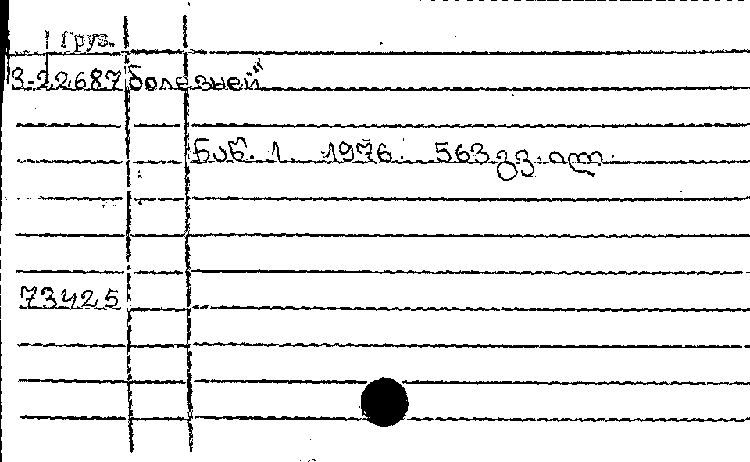 Груз.
3-22687 болезней"
ნაწ. 1. 1976. 563 გვ. ილ.
73425